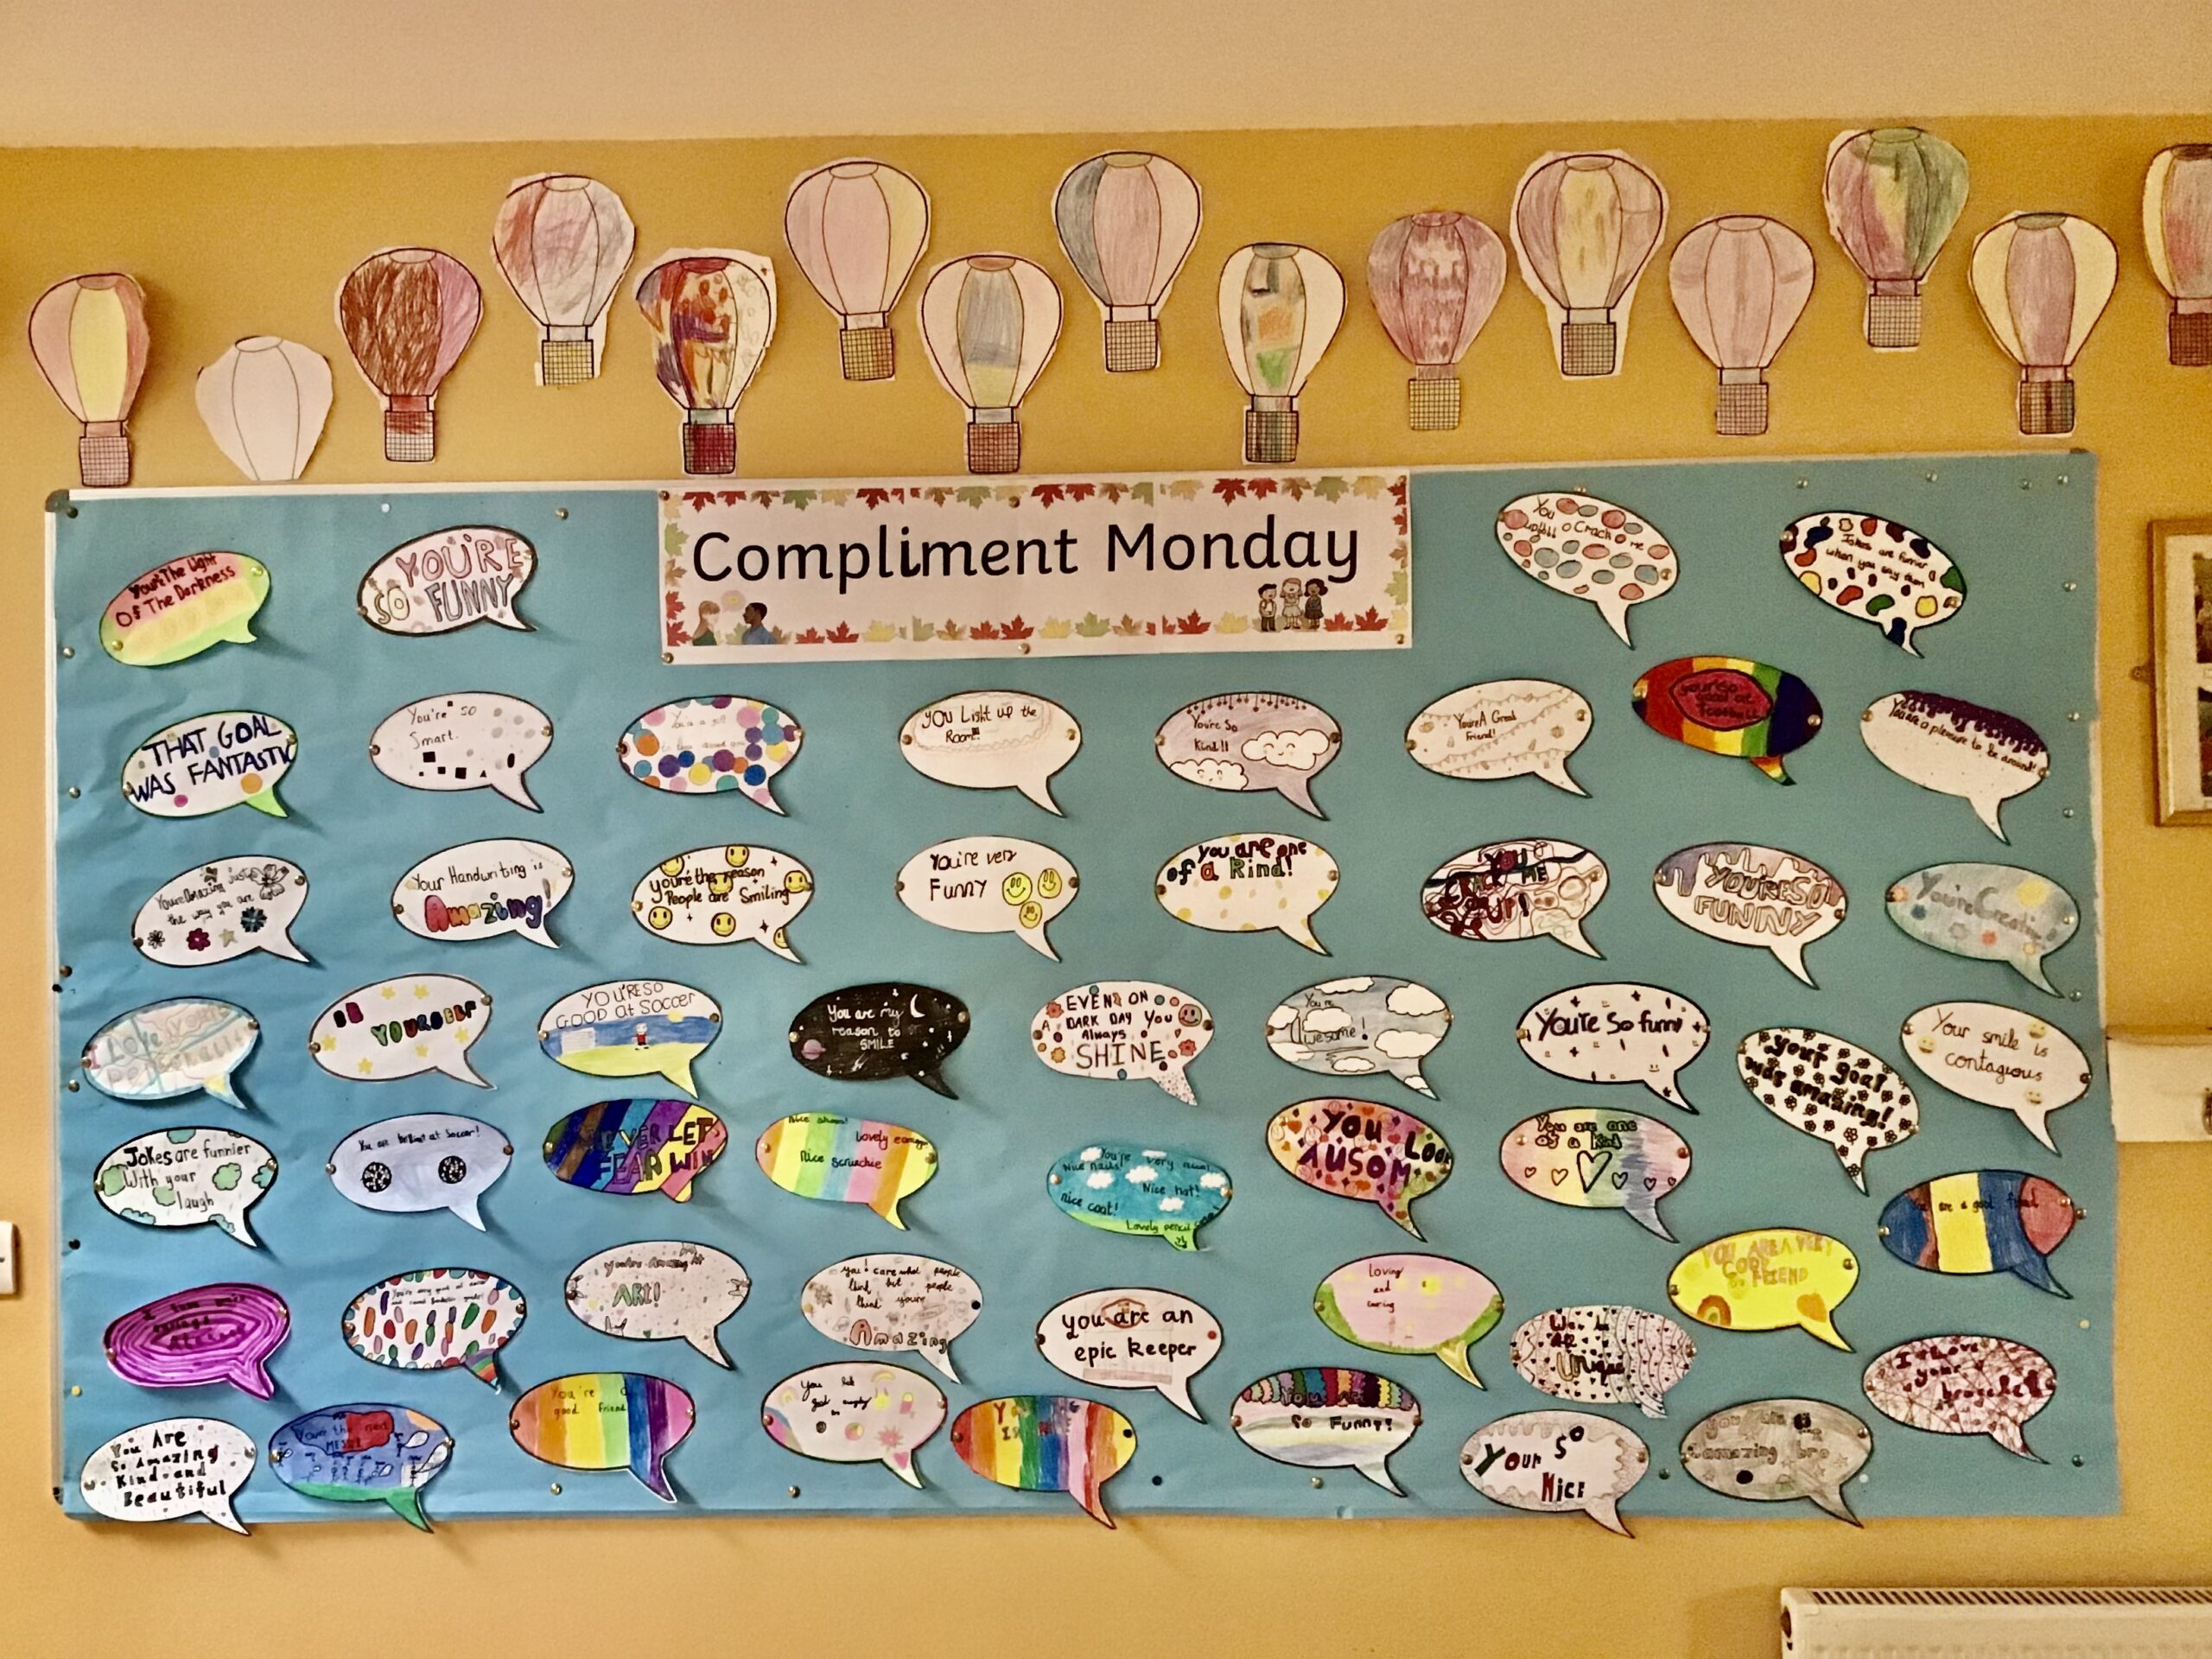 Compliment Monday
Of The Darkness
YOU'RE
SO FUNNY
You
Crack me
Jokes are funnier
when you say them
THAT GOAL
WAS FANTASTIC
You're so
Smart.
you Light up the
Room!!
You're So
Kind!!
You're A Great
Friend!
good at
football
You are a pleasure to be around!
the way you are
Your Handwriting is
Amazing!
you're the reason
People are Smiling
You're very
Funny
you are one
of a Kind!
YOU
CRACK ME
UP!
YOU'RE SO
FUNNY
You're Creative
I Love your
BE
YOURSELF
YOU'RE SO
GOOD at SOCCER
You are my
reason to
SMILE
EVEN ON
A DARK DAY YOU
Always
SHINE
You're
Awesome!
You're So funny
your goal
was amazing!
Your smile is
contagious
Jokes are funnier
With your
laugh
You are brilliant at Soccer!
NEVER LET
FEAR WIN
Nice
Lovely
Nice scruchie
You're very nice!
Nice nails!
Nice hat!
nice coat!
Lovely pencil
YOU LOOK
AUSOM
You are one
of a Kind
are a good friend
YOU ARE A VERY
GOOD
FRIEND
you're Amazing At
ART!
you! care what people
think but people
think you're
Amazing
you are an
epic keeper
Loving
and
caring
Unique
I Love
your
bracelet
You Are
So Amazing
Kind and
Beautiful
You're the next
MESSI
You're a
good friend
You
So Funny!
Your So
Nice
amazing bro